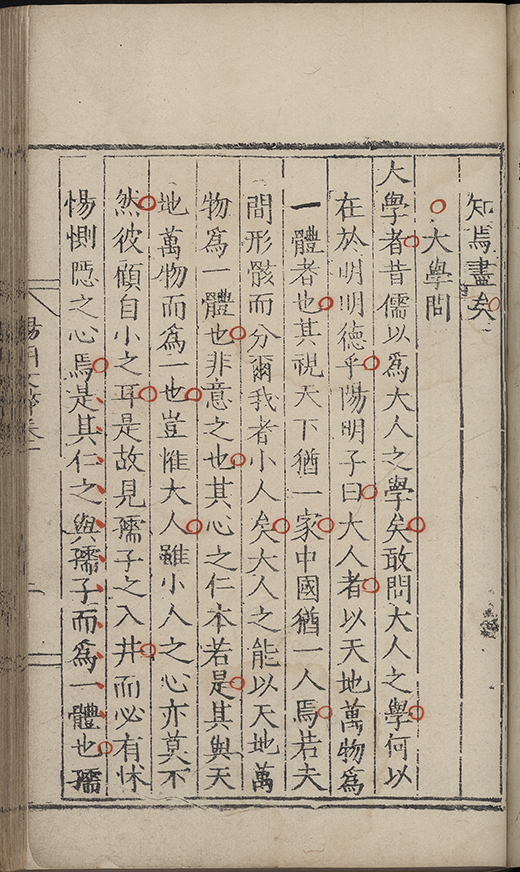 知焉盡矣
大學問
大學者昔儒以爲大人之學矣敢問大人之學何以
在於明明德乎陽明子曰大人者以天地萬物爲
一體者也其視天下猶一家中國猶一人焉若夫
間形骸而分爾我者小人矣大人之能以天地萬
物爲一體也非意之也其心之仁本若是其與天
地萬物而爲一也豈惟大人雖小人之心亦莫不
然彼顧自小之耳是故見孺子之入井而必有怵
惕惻隱之心焉是其仁之與孺子而爲一體也孺